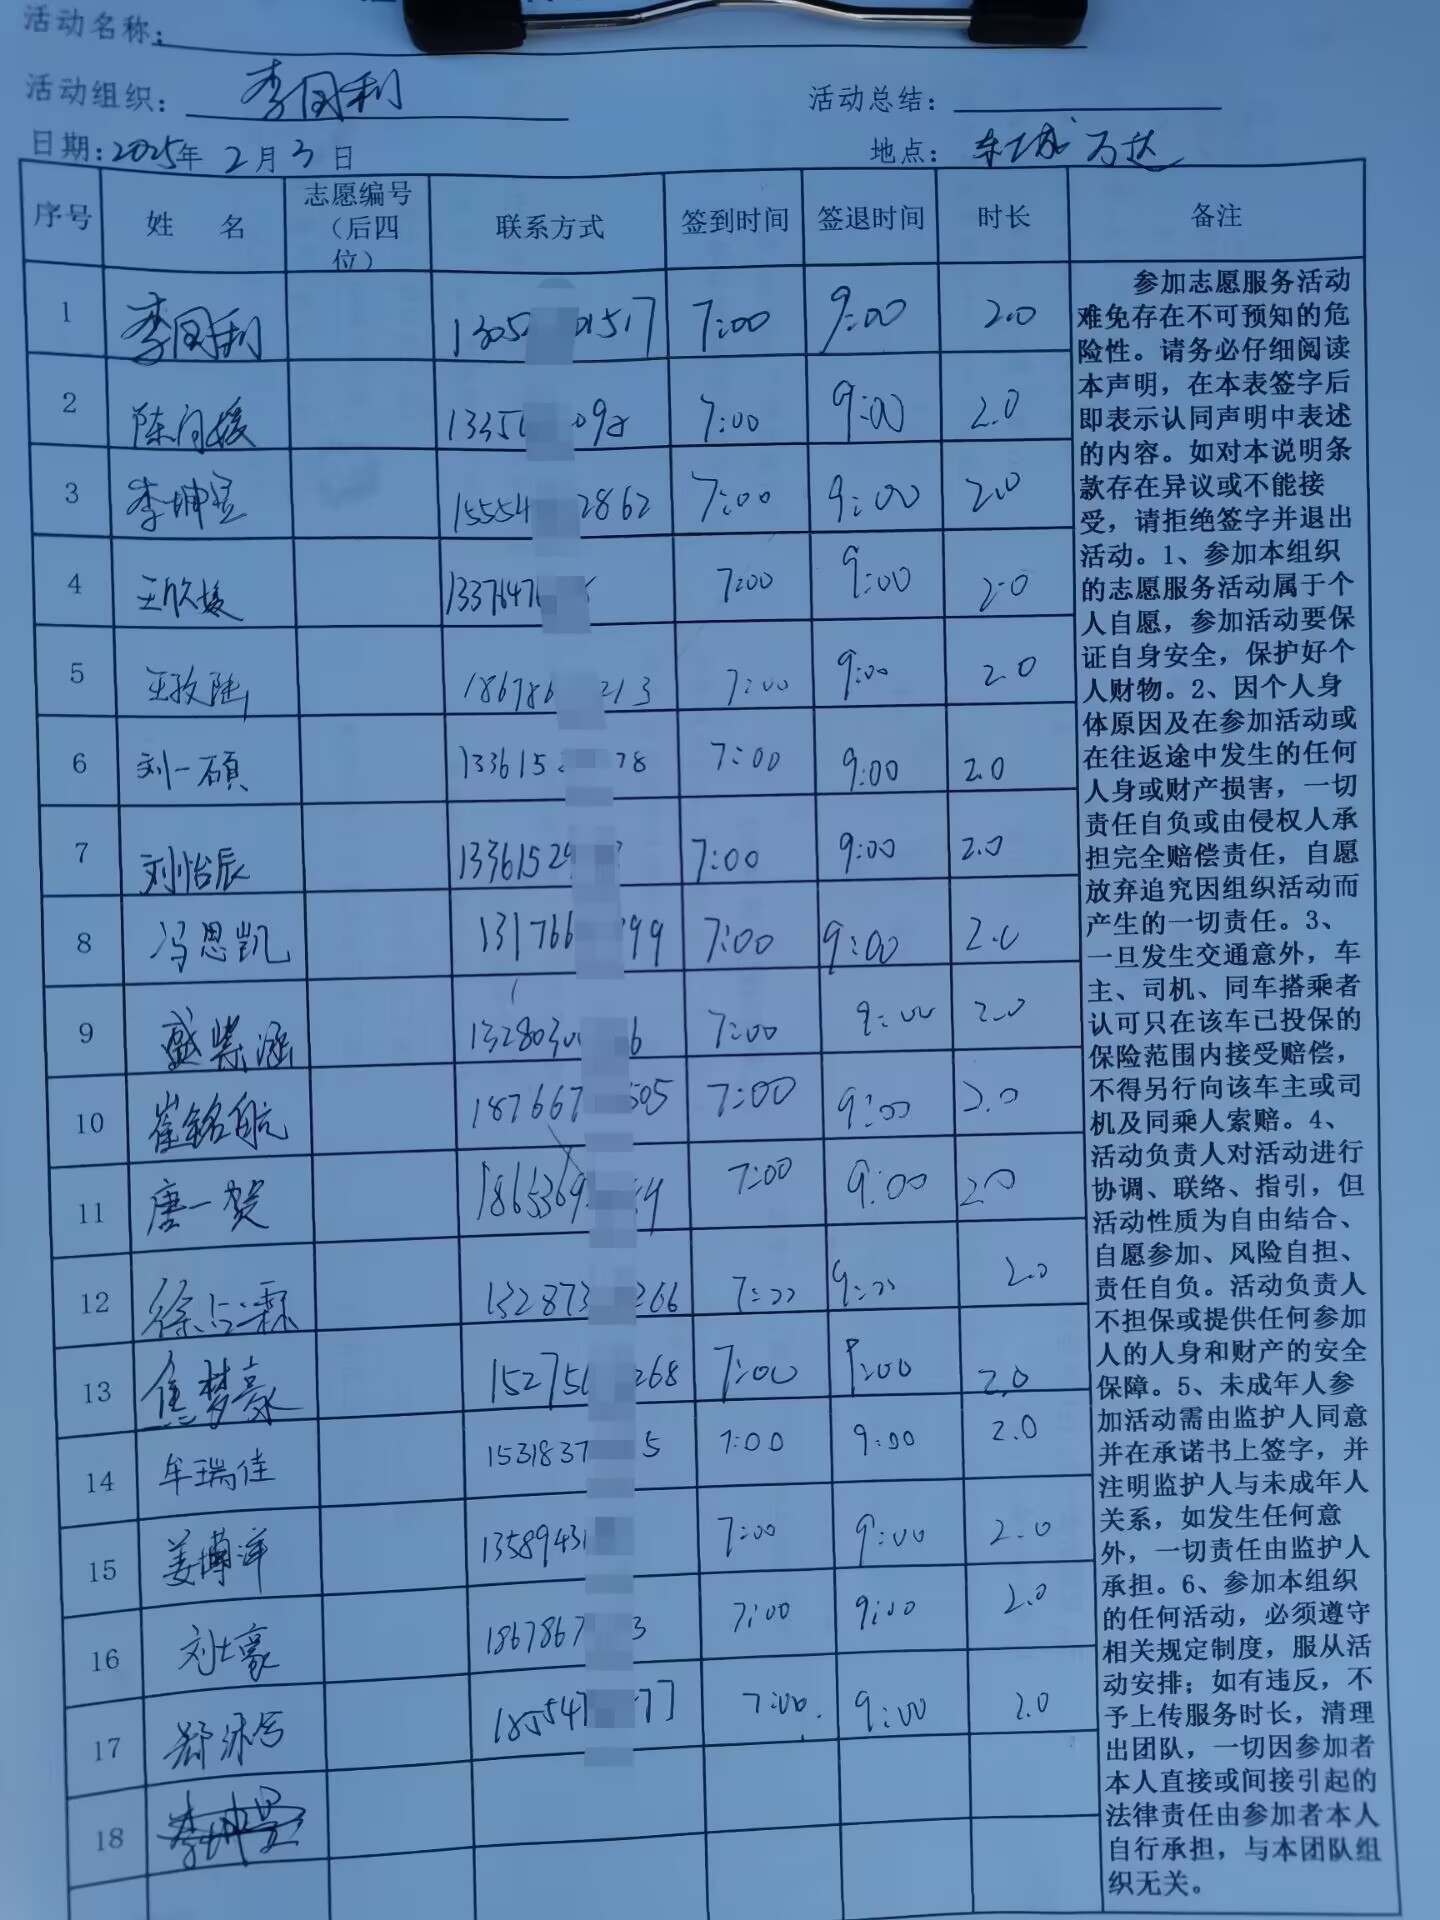 活动名称：
活动组织：李同利 活动总结：
日期：2025年2月3日 地点：东城万达
序号 姓 名 志愿编号（后四位） 联系方式 签到时间 签退时间 时长 备注
1 李同利 7:00 9:00 2.0
2 7:00 9:00 2.0
3 李坤昱 15554 2862 7:00 9:00 2.0
4 王欣媛 7:00 9:00 2.0
5 18678 213 7:00 9:00 2.0
6 刘一硕 133615 78 7:00 9:00 2.0
7 刘怡辰 13361529 7:00 9:00 2.0
8 冯思凯 131766 99 7:00 9:00 2.0
9 13280300 6 7:00 9:00 2.0
10 崔铭航 187667 505 7:00 9:00 2.0
11 唐一贺 1865369 7:00 9:00 2.0
12 132873 266 7:00 9:00 2.0
13 焦梦豪 15275 268 7:00 9:00 2.0
14 牟瑞佳 1531837 5 7:00 9:00 2.0
15 姜博洋 1358943 7:00 9:00 2.0
16 刘士豪 1867867 3 7:00 9:00 2.0
17 185547 77 7:00 9:00 2.0
18
参加志愿服务活动
难免存在不可预知的危
险性。请务必仔细阅读
本声明，在本表签字后
即表示认同声明中表述
的内容。如对本说明条
款存在异议或不能接
受，请拒绝签字并退出
活动。1、参加本组织
的志愿服务活动属于个
人自愿，参加活动要保
证自身安全，保护好个
人财物。2、因个人身
体原因及在参加活动或
在往返途中发生的任何
人身或财产损害，一切
责任自负或由侵权人承
担完全赔偿责任，自愿
放弃追究因组织活动而
产生的一切责任。3、
一旦发生交通意外，车
主、司机、同车搭乘者
认可只在该车已投保的
保险范围内接受赔偿，
不得另行向该车主或司
机及同乘人索赔。4、
活动负责人对活动进行
协调、联络、指引，但
活动性质为自由结合、
自愿参加、风险自担、
责任自负。活动负责人
不担保或提供任何参加
人的人身和财产的安全
保障。5、未成年人参
加活动需由监护人同意
并在承诺书上签字，并
注明监护人与未成年人
关系，如发生任何意
外，一切责任由监护人
承担。6、参加本组织
的任何活动，必须遵守
相关规定制度，服从活
动安排；如有违反，不
予上传服务时长，清理
出团队，一切因参加者
本人直接或间接引起的
法律责任由参加者本人
自行承担，与本团队组
织无关。